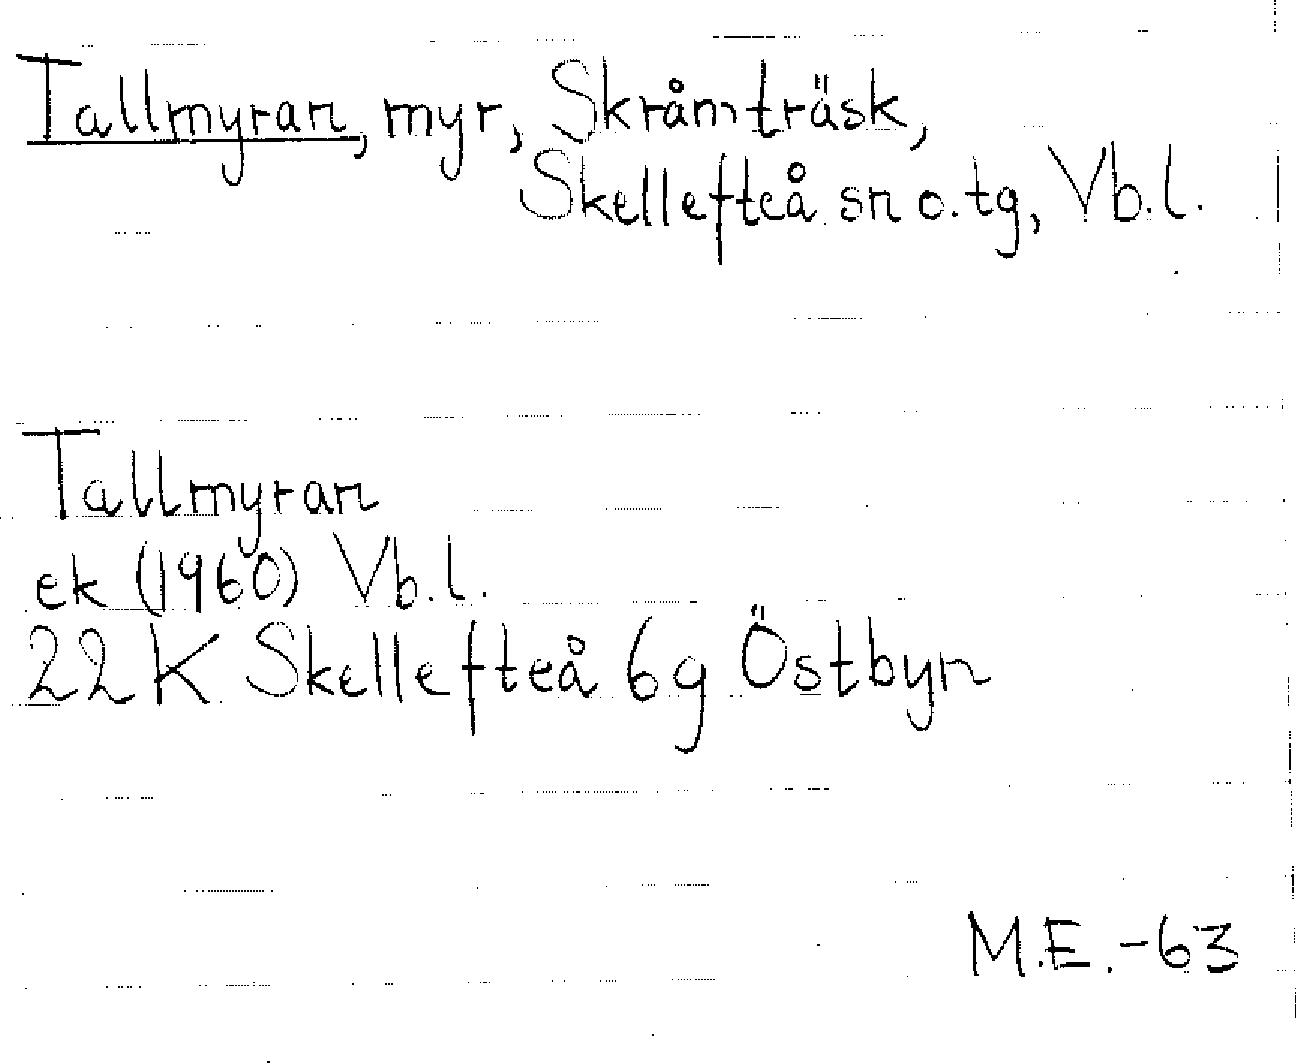 Tallmyran, myr, Skråmträsk,
Skellefteå sn o. tg, Vb.l.
Tallmyran
ek (1960) Vb.l.
22K Skellefteå 6g Östbyn
M.E.-63